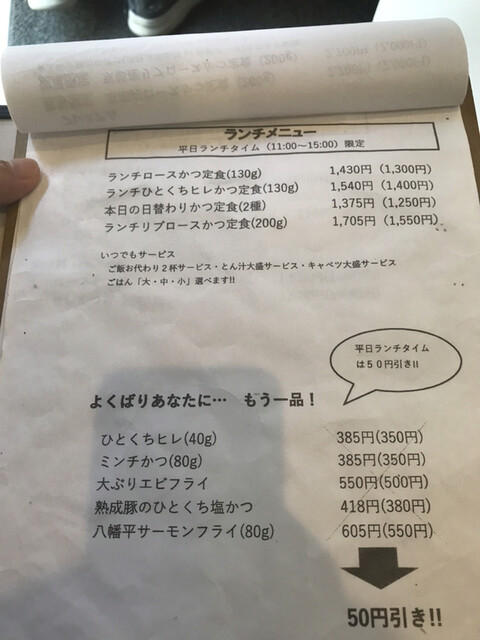 ランチメニュー
平日ランチタイム（11:00～15:00）限定
ランチロースかつ定食(130g) 1,430円（1,300円）
ランチひとくちヒレかつ定食(130g) 1,540円（1,400円）
本日の日替わりかつ定食(2種) 1,375円（1,250円）
ランチリブロースかつ定食(200g) 1,705円（1,550円）
いつでもサービス
ご飯お代わり２杯サービス・とん汁大盛サービス・キャベツ大盛サービス
ごはん「大・中・小」選べます!!
平日ランチタイム
は５０円引き!!
よくばりあなたに… もう一品！
ひとくちヒレ(40g) 385円(350円)
ミンチかつ(80g) 385円(350円)
大ぶりエビフライ 550円(500円)
熟成豚のひとくち塩かつ 418円(380円)
八幡平サーモンフライ(80g) 605円(550円)
50円引き!!